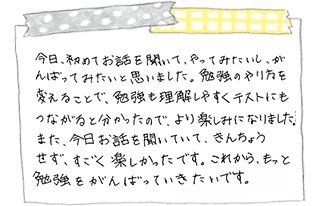 今日、初めてお話を聞いて、やってみたいし、が
んばってみたいと思いました。勉強のやり方を
変えることで、勉強も理解しやすくテストにも
つながると分かったので、より楽しみになりました。
また、今日お話を聞いていて、きんちょう
せず、すごく楽しかったです。これから、もっと
勉強をがんばっていきたいです。